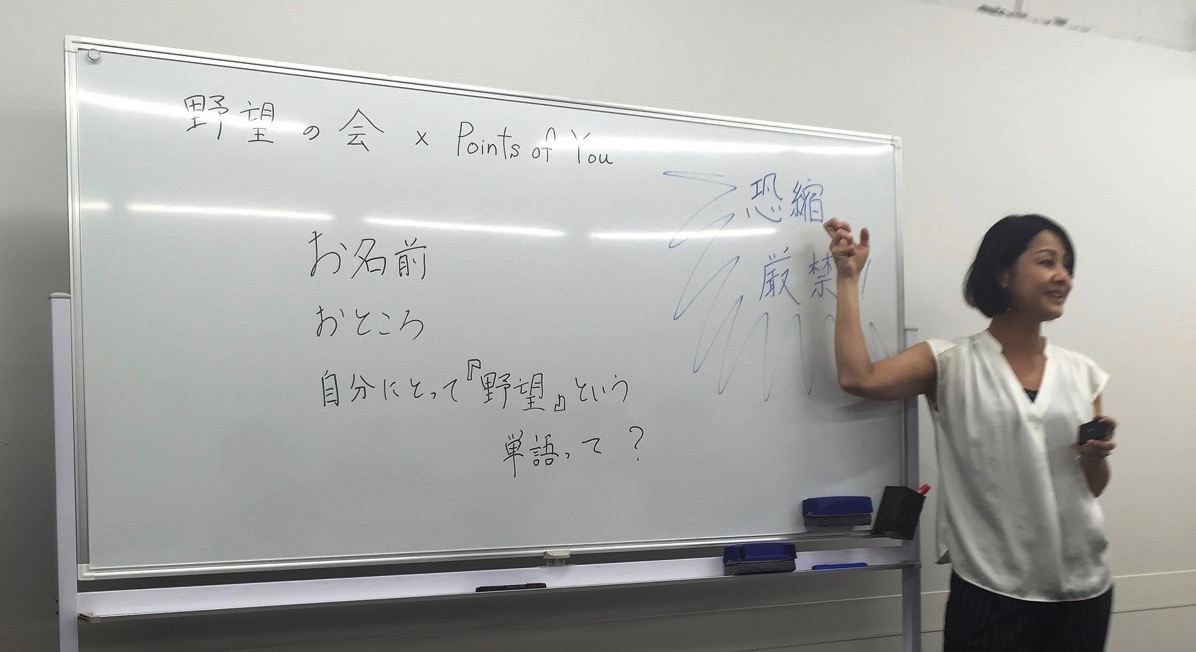 野望の会 × Points of You
お名前
おところ
自分にとって『野望』という
単語って?
恐縮
厳禁!!